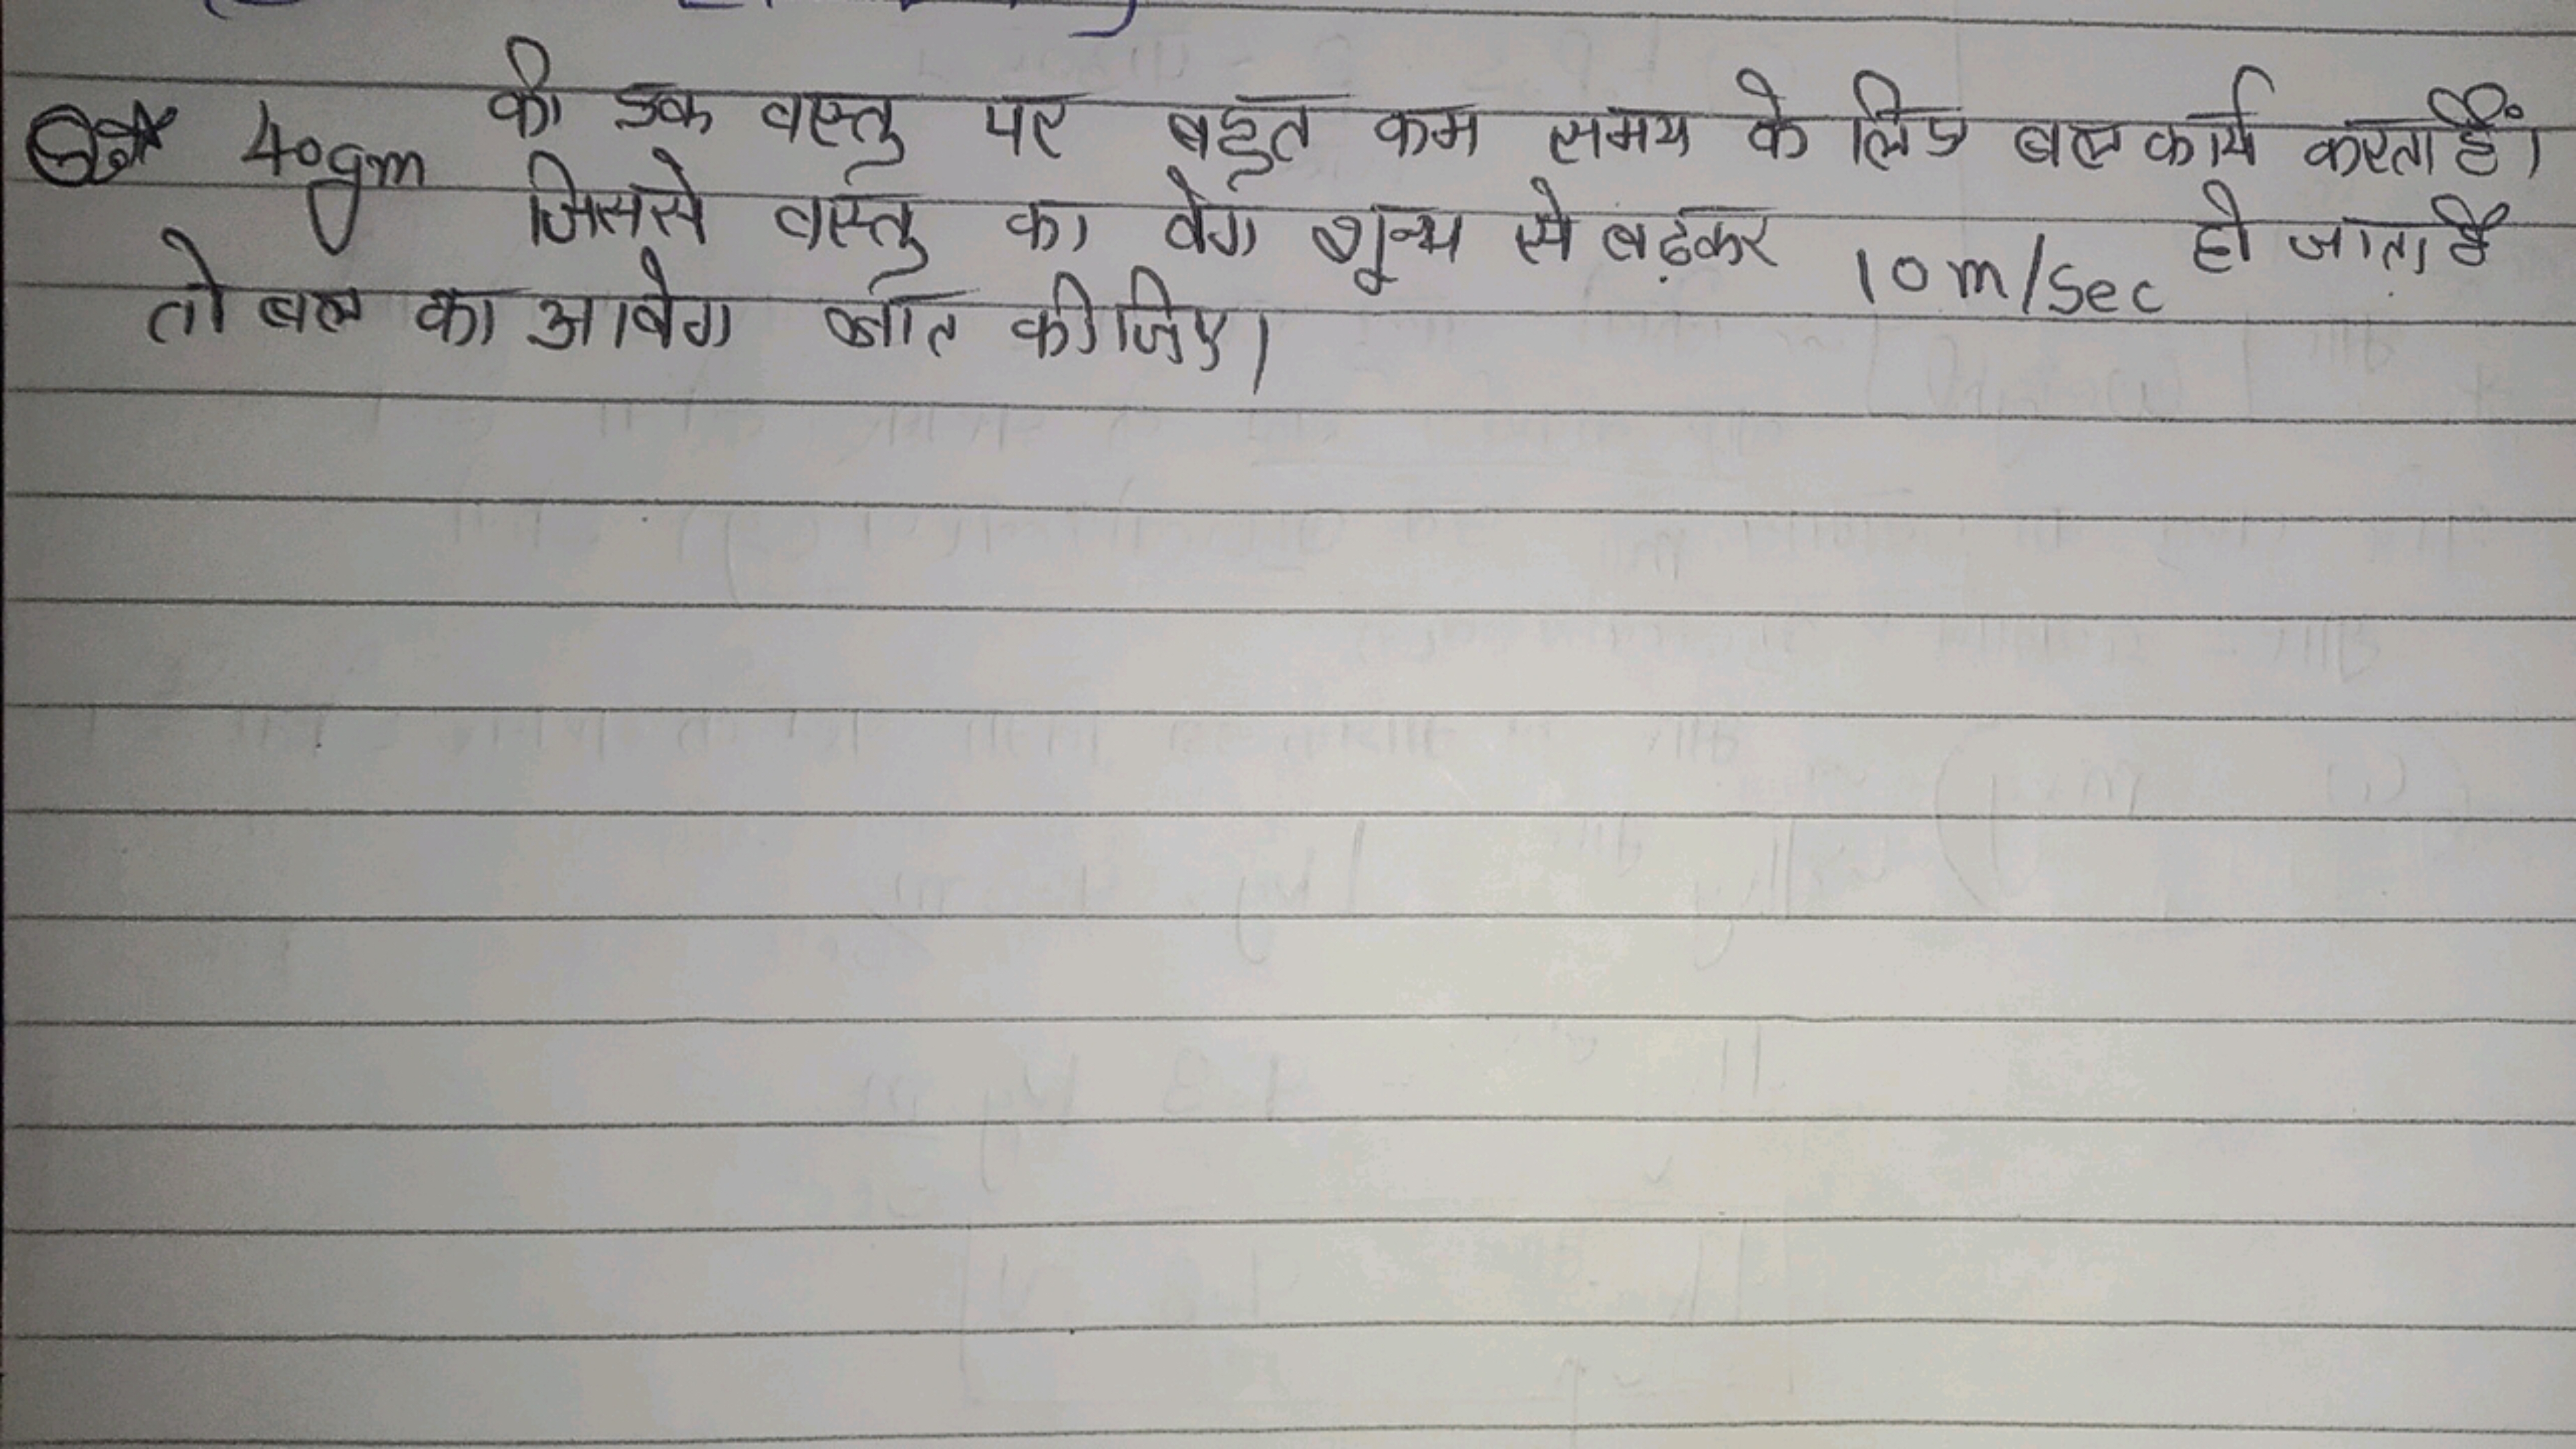 40gm की एक वस्तु पर बहुत कम समय के लिए बल कार्य करता हैं।
जिससे वस्तु का वेग शून्य से बढ़कर 10m/sec हो जाता है
तो बल का आवेग ज्ञात कीजिए।